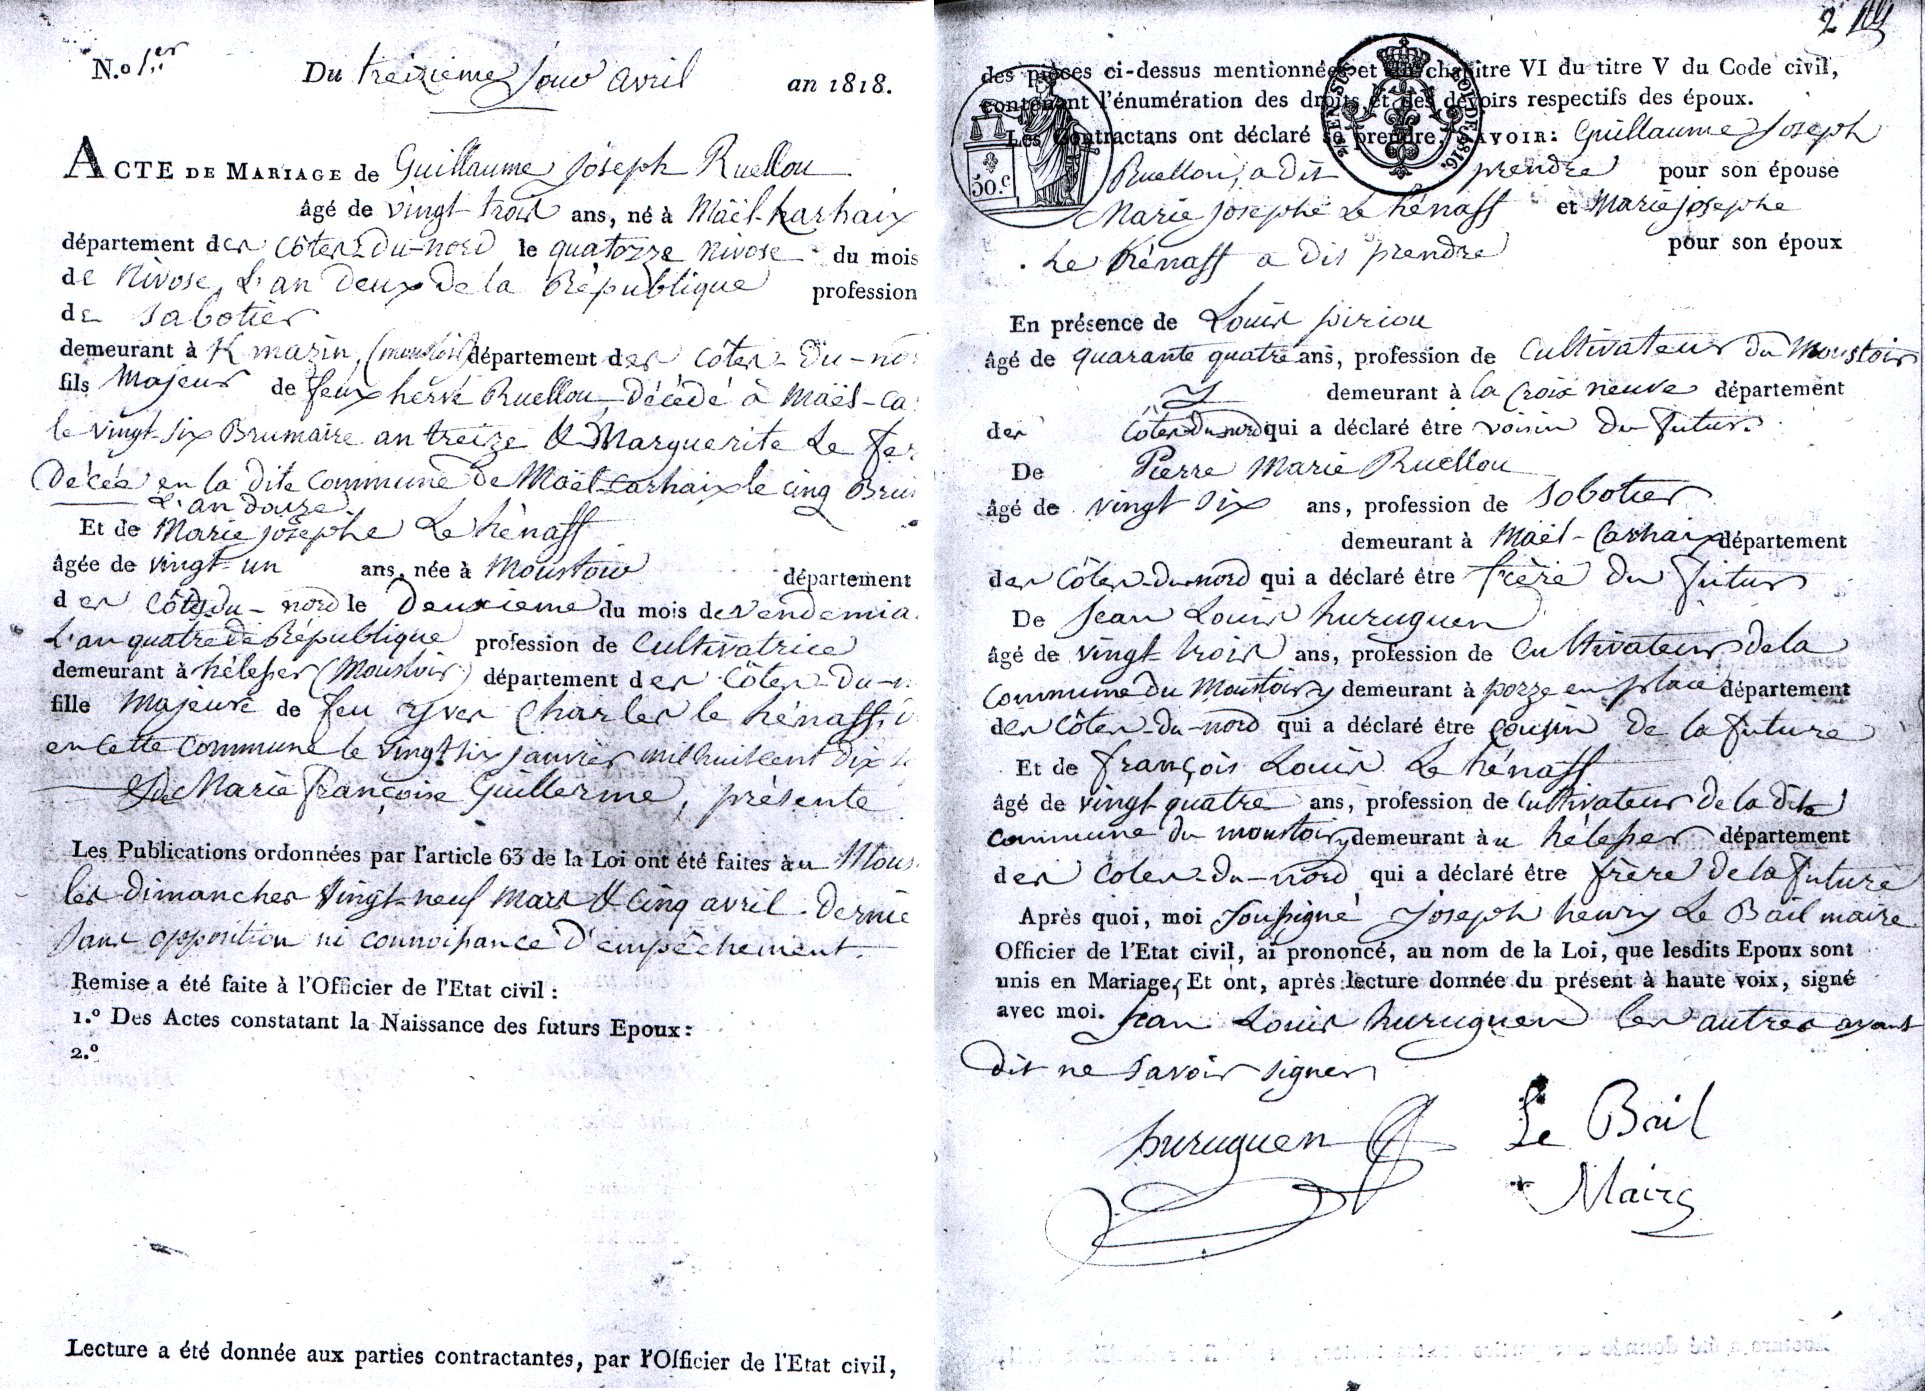 N.o 1.er
Du treizieme jour avril an 1818.
ACTE DE MARIAGE de Guillaume Joseph Ruellou
âgé de vingt trois ans, né à Maël-Karhaix
département des Côtes-du-nord le quatorze nivose du mois
de Nivose, L'an deux de la République profession
de sabotier
demeurant à K mazin (moustoir) département des Côtes-du-no
fils Majeur de feux hervé Ruellou Décédé à Maël-Ca
le vingt six Brumaire an treize & Marguerite Le fer
Décéé en la dite commune de Maël-carhaix le cinq Brum
L'an douze
Et de Marie josephe Le hénaff
âgée de vingt un ans, née à Moustoir département
des Côtes du-nord le Deuxieme du mois de vendemia
L'an quatre de République profession de Cultivatrice
demeurant à héleser (Moustoir) département des Côtes-du-n
fille Majeure de feu yves Charles le hénaff, d
en cette commune le vingt six janvier mil huit cent dix s
& de Marie Françoise Guillerme, présente
Les Publications ordonnées par l'article 63 de la Loi ont été faites àu Mous
les dimanches vingt-neuf mars & cinq avril dernie
sans opposition ni connoissance d'empêchement.
Remise a été faite à l'Officier de l'Etat civil :
1.º Des Actes constatant la Naissance des futurs Epoux :
2.º
Lecture a été donnée aux parties contractantes, par l'Officier de l'Etat civil,
2
des pièces ci-dessus mentionnées et du chapitre VI du titre V du Code civil,
contenant l'énumération des droits et des devoirs respectifs des époux.
Les Contractans ont déclaré se prendre, SAVOIR: Guillaume Joseph
Ruellou, a dit prendre pour son épouse
Marie josephe Le hénaff et Marie josephe
Le hénaff a dit prendre pour son époux
50.c
LOI DE 1816.
En présence de Louis piriou
âgé de quarante quatre ans, profession de Cultivateur du Moustoir
demeurant à la Croix neuve département
des Côtes du nord qui a déclaré être voisin du futur.
De Pierre Marie Ruellou
âgé de vingt six ans, profession de Sabotier
demeurant à Maël-Carhaix département
des Côtes-du-nord qui a déclaré être frère du futur
De Jean Louis huruguen
âgé de vingt-trois ans, profession de Cultivateur de la
commune du Moustoir y demeurant à pozze en place département
des Côtes-du-nord qui a déclaré être cousin de la future
Et de françois Louis Le hénaff
âgé de vingt quatre ans, profession de Cultivateur de la dite
commune du moustoir y demeurant àu héleser département
des Côtes-du-nord qui a déclaré être frère de la future
Après quoi, moi soussigné Joseph henry Le Bail maire
Officier de l'Etat civil, ai prononcé, au nom de la Loi, que lesdits Epoux sont
unis en Mariage. Et ont, après lecture donnée du présent à haute voix, signé
avec moi. Jean Louis huruguen les autres ayant
dit ne savoir signer
huruguen Le Bail
Maire